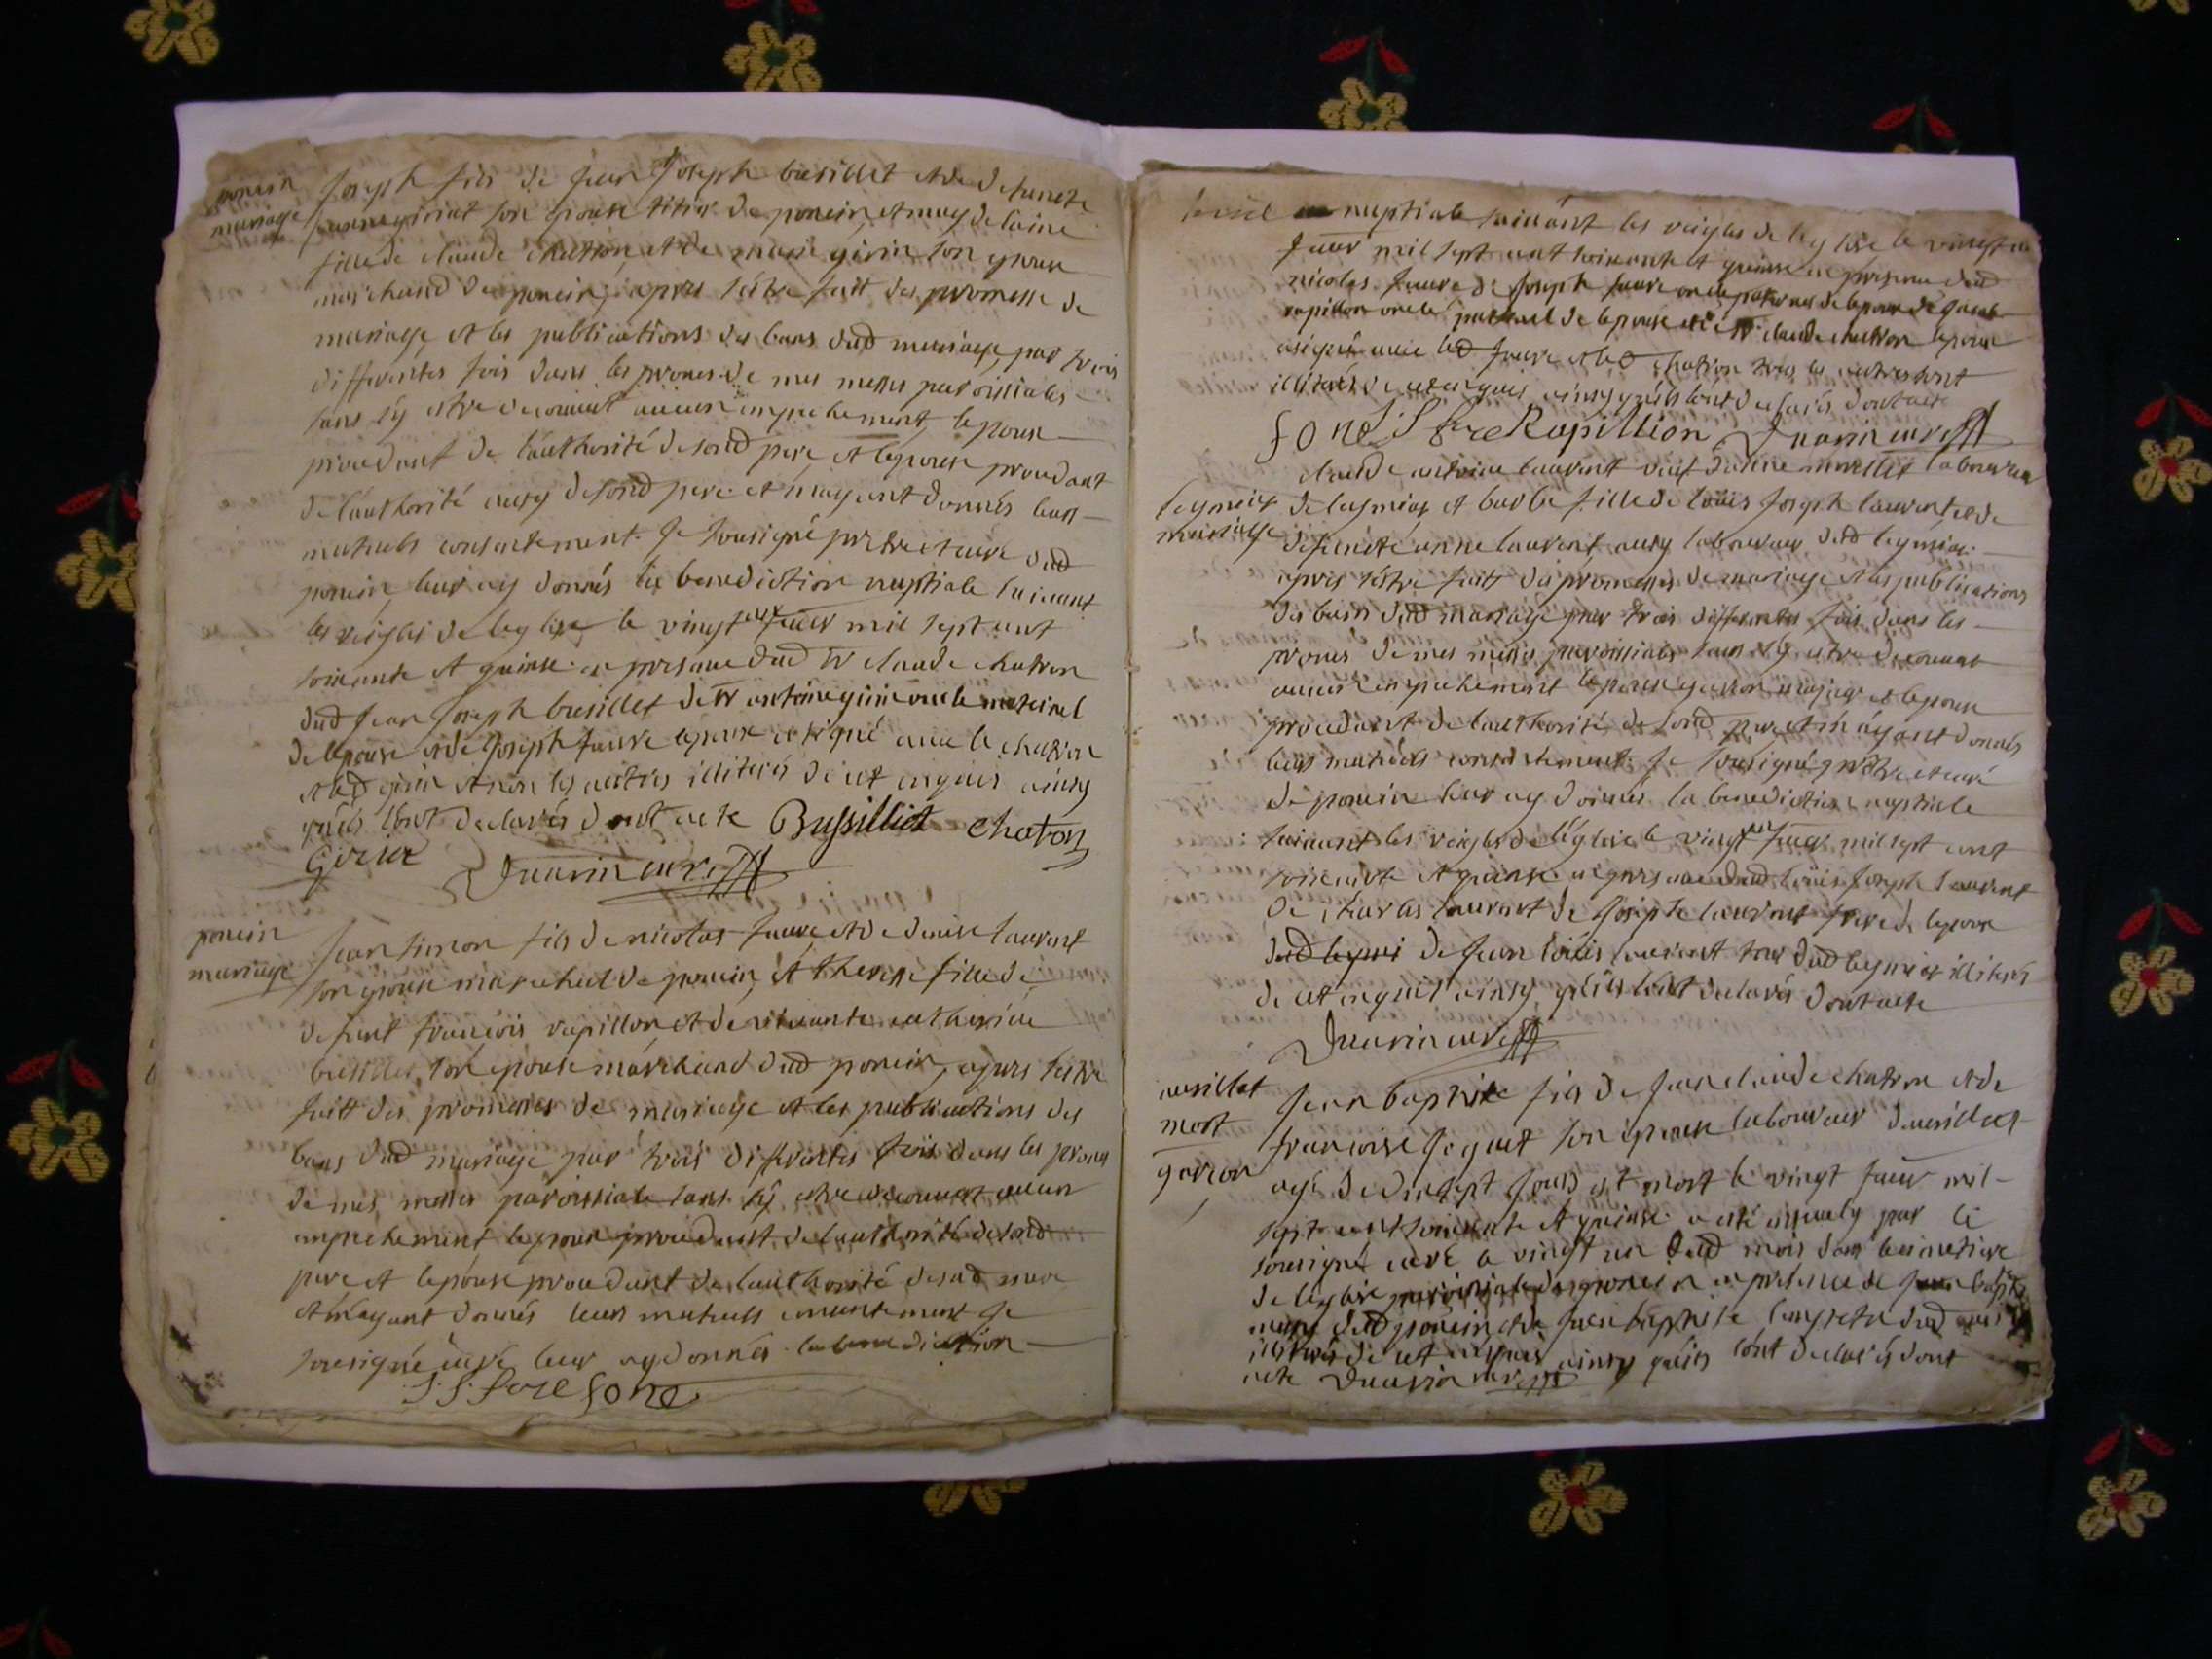 poncin
mariage
Joseph fils de jean Joseph busillet et de defuncte
son epouse de poncin et magdelaine
fille de claude chatron et de marie girin son epouse
marchand de poncin, apres s'estre faitt des promesse de
mariage et les publications des bans dud mariage par trois
differentes fois dans les prones de mes messes paroissiales
sans s'y estre decouvert aucun empechement, l'epoux
procedant de l'authorité desond pere et l'epouse procedant
de l'authorité aussy desond pere et m'ayant donnés leurs
mutuels consentement. Je sousigné pretre et curé dud
poncin leur ay donnés la benediction nuptiale suivant
les reigles de leglise le vingt feuvr mil sept cent
soixante et quinse en presence dud sr claude chatron
dud jean Joseph busillet de sr antoine girin oncle maternel
de l'epouse et de Joseph faure l'epoux a signé avec le chatron
et led girin et non les autres illiterés de ce enquis ainsy
qu'ils l'ont declarés dont acte Bussilliet chaton
Girin curé
poncin
mariage
Jean simon fils de nicolas faure et de denise laurent
son epouse marechal de poncin, et therese fille de
defunt françois rapillon et de vivante catherine
busillet son epouse marchand dud poncin, apres s'estre
faitt des promesses de mariage et les publications des
bans dud mariage par trois differentes fois dans les prones
de mes messes paroissiale sans s'y estre decouvert aucun
empechement l'epoux procedant de l'authorité desond
pere et l'epouse procedant de l'authorité desad mere
et m'ayant donnés leurs mutuels consentement Je
sousigné curé leur ay donnés la benediction
J. S. fore fore
nuptiale suivant les reigles de leglise le vingt
feuvr mil sept cent soixante et quinse en presence dud
nicolas faure de Joseph faure oncle paternel de l'epoux de
rapillon oncle paternel de l'epouse et de sr claude chatron l'epoux
a signé avec led faure et led chatron tous les autres sont
illiterés de ce enquis ainsy qu'ils l'ont declarés dont acte
fore J S fore Rapillion curé
leymiat
mariage
claude antoine laurent veuf d'anne laboureur
de leymiat et barbe fille de louis Joseph laurent et de
defuncte anne laurent aussy laboureur dud leymiat
apres s'estre faitt des promesses de mariage et les publications
des bans dud mariage par trois differentes fois dans les
prones de mes messes paroissiales sans s'y estre decouvert
aucun empechement l'epoux garson majeur et l'epouse
procedant de l'authorité desond pere et m'ayant donnés
leurs mutuels consentement. Je sousigné pretre et curé
de poncin leur ay donnés la benediction nuptiale
suivant les reigles de l'église le vingt feuvr mil sept cent
soixante et quinse en presence dud louis Joseph laurent
de charles laurent de Joseph laurent frere de l'epoux
de jean louis laurent tous dud leymiat illiterés
de ce enquis ainsy qu'ils l'ont declarés dont acte
curé
avrillat
mort
garson
Jean baptiste fils de jean claude chatron et de
francoise Joguet son epouse laboureur d'avrillat
agé de dixsept jours est mort le vingt feuvr mil
sept cent soixante et quinse a esté ensevely par le
sousigné curé le vingt un dud mois dans le cimetiere
de leglise paroissiale de poncin en presence de jean baptiste
dud poncin et de jean baptiste dud
illiterés de ce enquis ainsy qu'ils l'ont declarés dont
acte curé